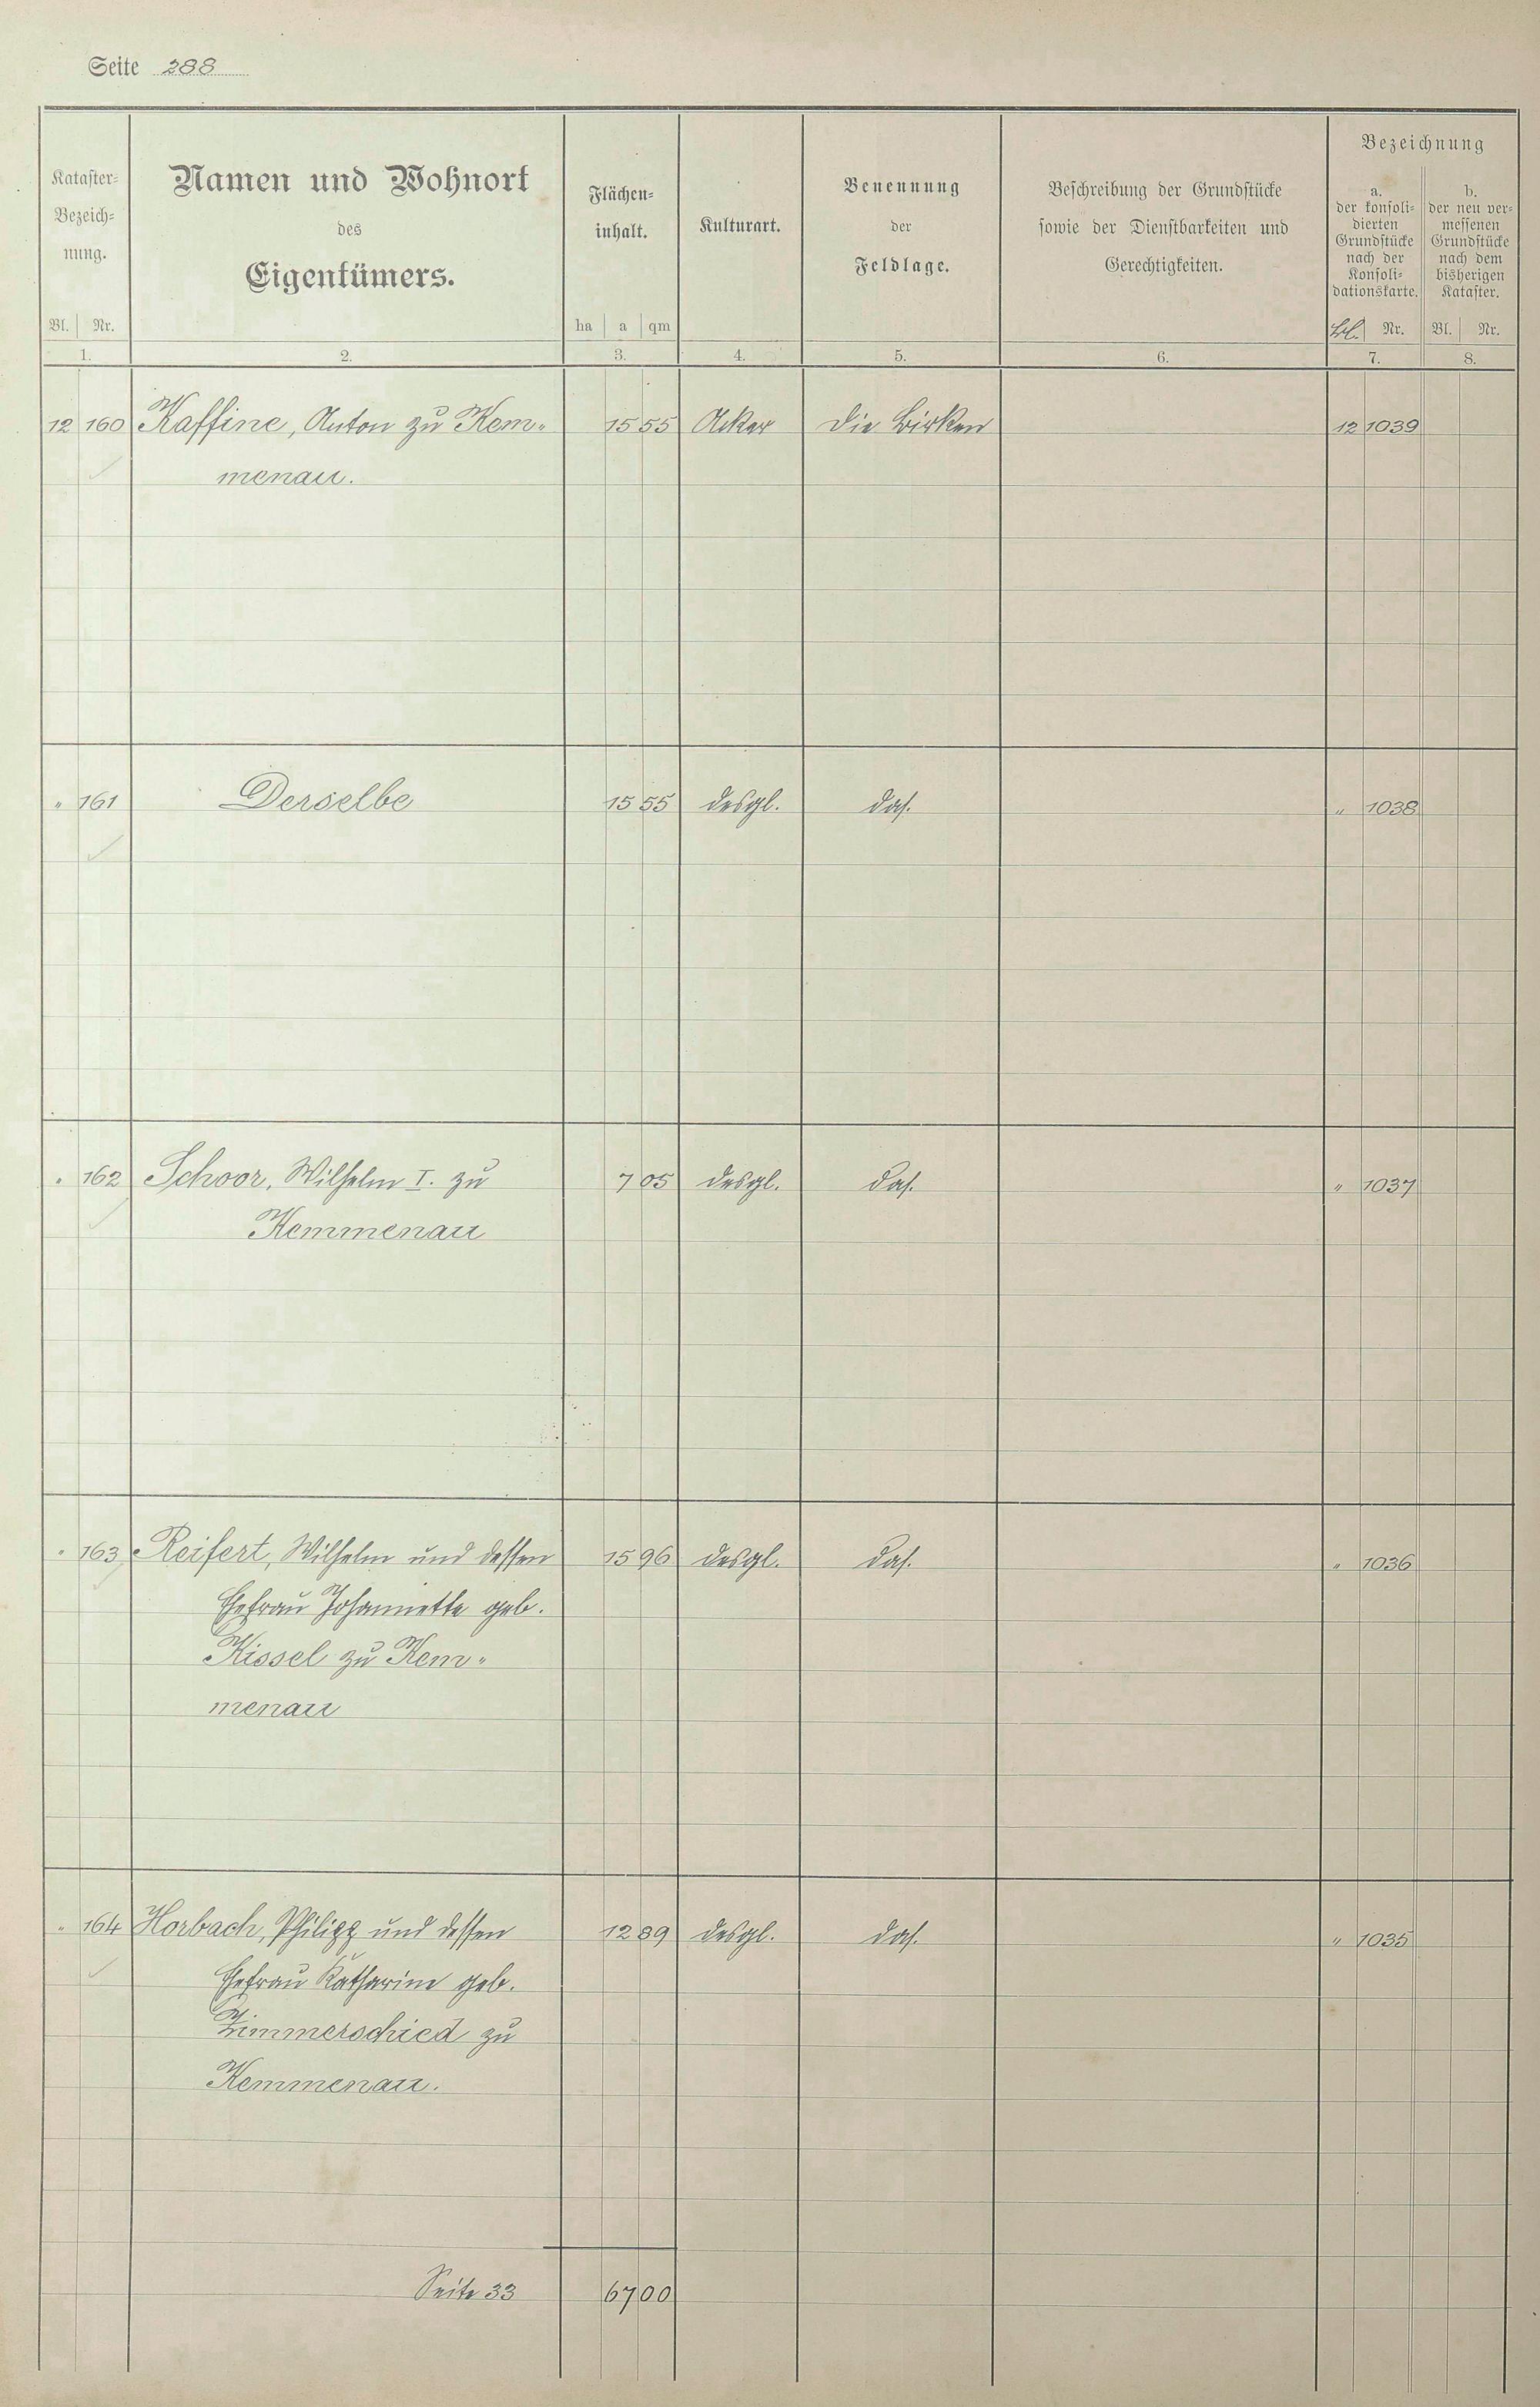 Seite 288
Kataster=
Bezeich=
nung.
Bl. Nr.
1.
Namen und Wohnort
des
Eigentümers.
2.
Flächen=
inhalt.
ha a qm
3.
Kulturart.
4.
Benennung
der
Feldlage.
5.
Beschreibung der Grundstücke
sowie der Dienstbarkeiten und
Gerechtigkeiten.
6.
Bezeichnung
a.
der konsoli=
dierten
Grundstücke
nach der
Konsoli=
dationskarte.
Bl. Nr.
7.
b.
der neu ver=
messenen
Grundstücke
nach dem
bisherigen
Kataster.
Bl. Nr.
8.
12 160 Kaffine, Anton zu Kem- 15 55 Acker Die Birken 12 1039
menau.
" 161 Derselbe 15 55 desgl. das. " 1038
" 162 Schoor, Wilhelm I. zu 7 05 desgl. das. " 1037
Kemmenau
" 163 Reifert, Wilhelm und dessen 15 96 desgl. das. " 1036
Ehefrau Johannette geb.
Kissel zu Kem-
menau
" 164 Horbach, Philipp und dessen 12 89 desgl. das. " 1035
Ehefrau Katharine geb.
Zimmerschied zu
Kemmenau.
Seite 33 67 00